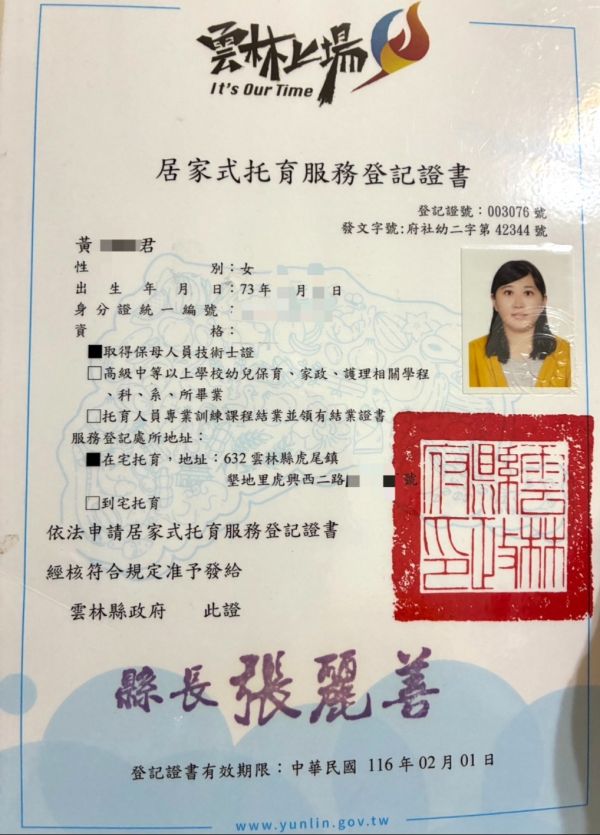 雲林上場
It's Our Time
居家式托育服務登記證書
登記證號：003076 號
發文字號:府社幼二字第 42344 號
黃 君
性別：女
出生年月日：73年 月 日
身分證統一編號：
資格：
■取得保母人員技術士證
□高級中等以上學校幼兒保育、家政、護理相關學程
、科、系、所畢業
□托育人員專業訓練課程結業並領有結業證書
服務登記處所地址：
■在宅托育，地址：632 雲林縣虎尾鎮
墾地里虎興西二路 號
□到宅托育
雲林縣政府印
依法申請居家式托育服務登記證書
經核符合規定准予發給
雲林縣政府 此證
縣長 張麗善
登記證書有效期限：中華民國 116 年 02 月 01 日
www.yunlin.gov.tw